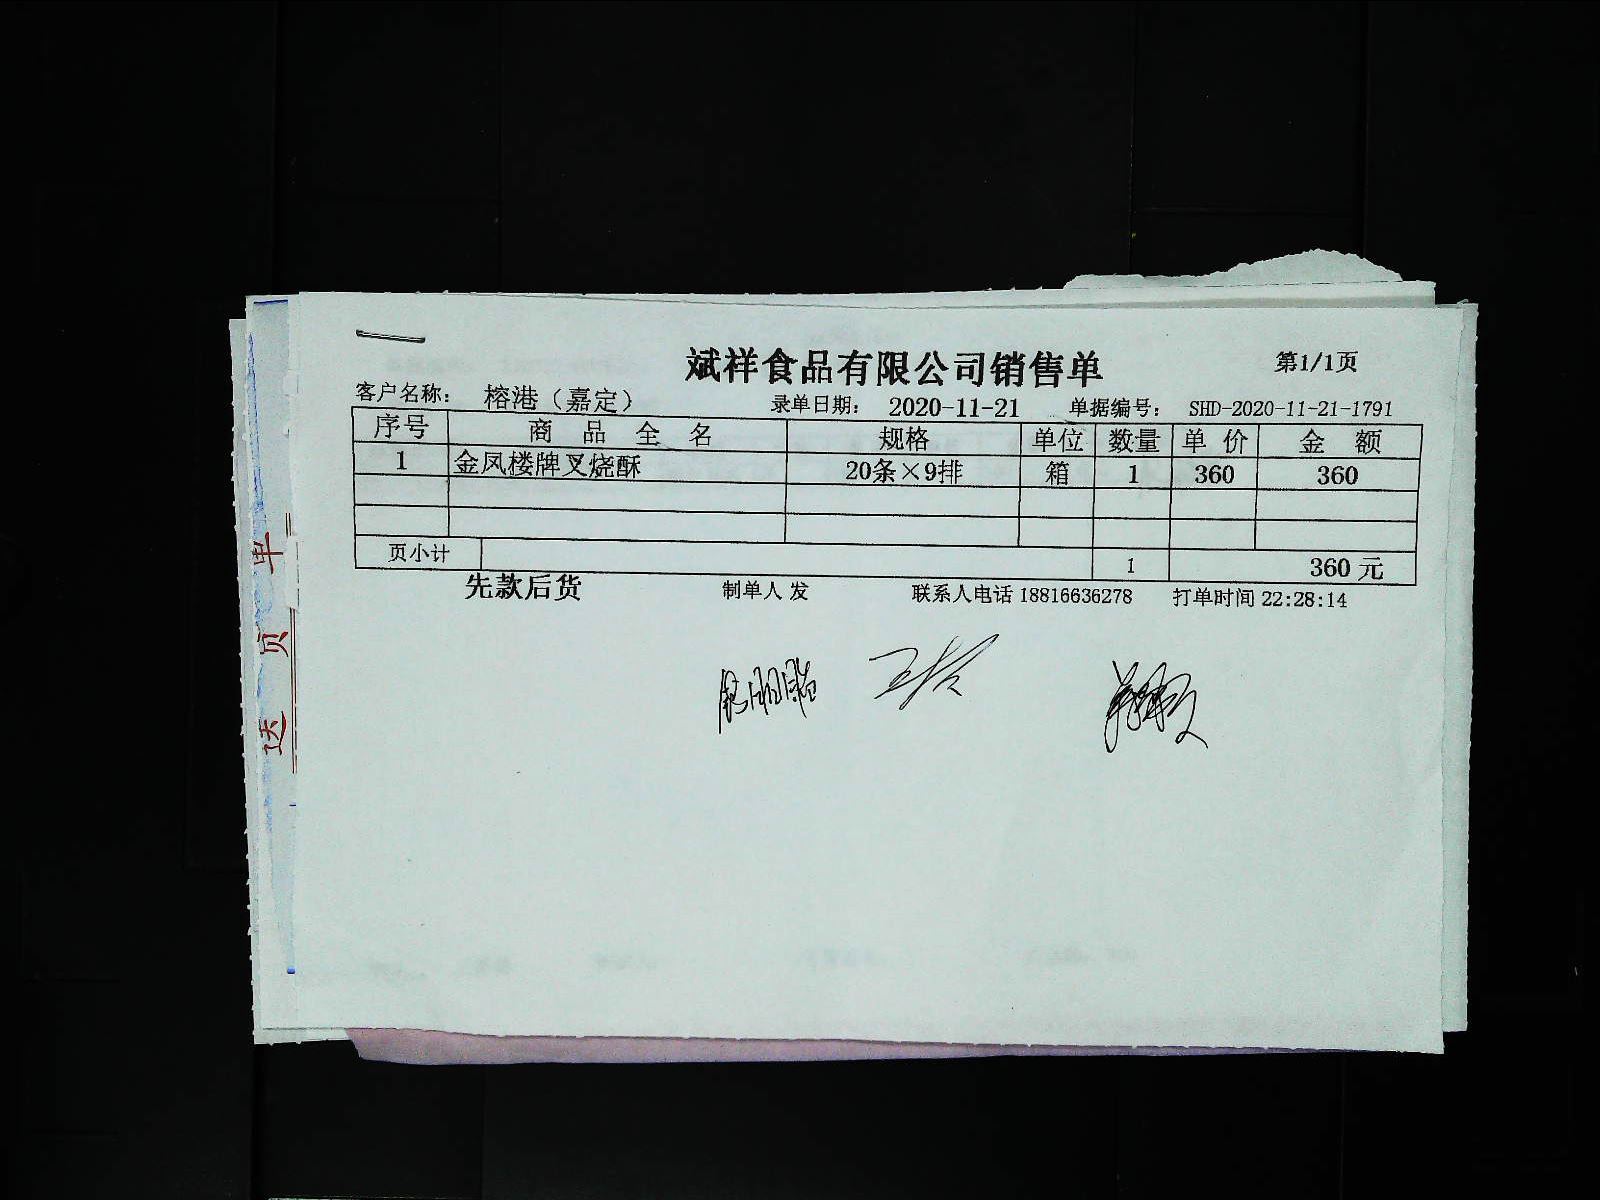 斌祥食品有限公司销售单 第1/1页
客户名称： 榕港（嘉定） 录单日期： 2020-11-21 单据编号： SHD-2020-11-21-1791
序号 商品全名 规格 单位 数量 单价 金额
1 金凤楼牌叉烧酥 20条×9排 箱 1 360 360
页小计 1 360元
先款后货 制单人 发 联系人电话 18816636278 打单时间 22:28:14